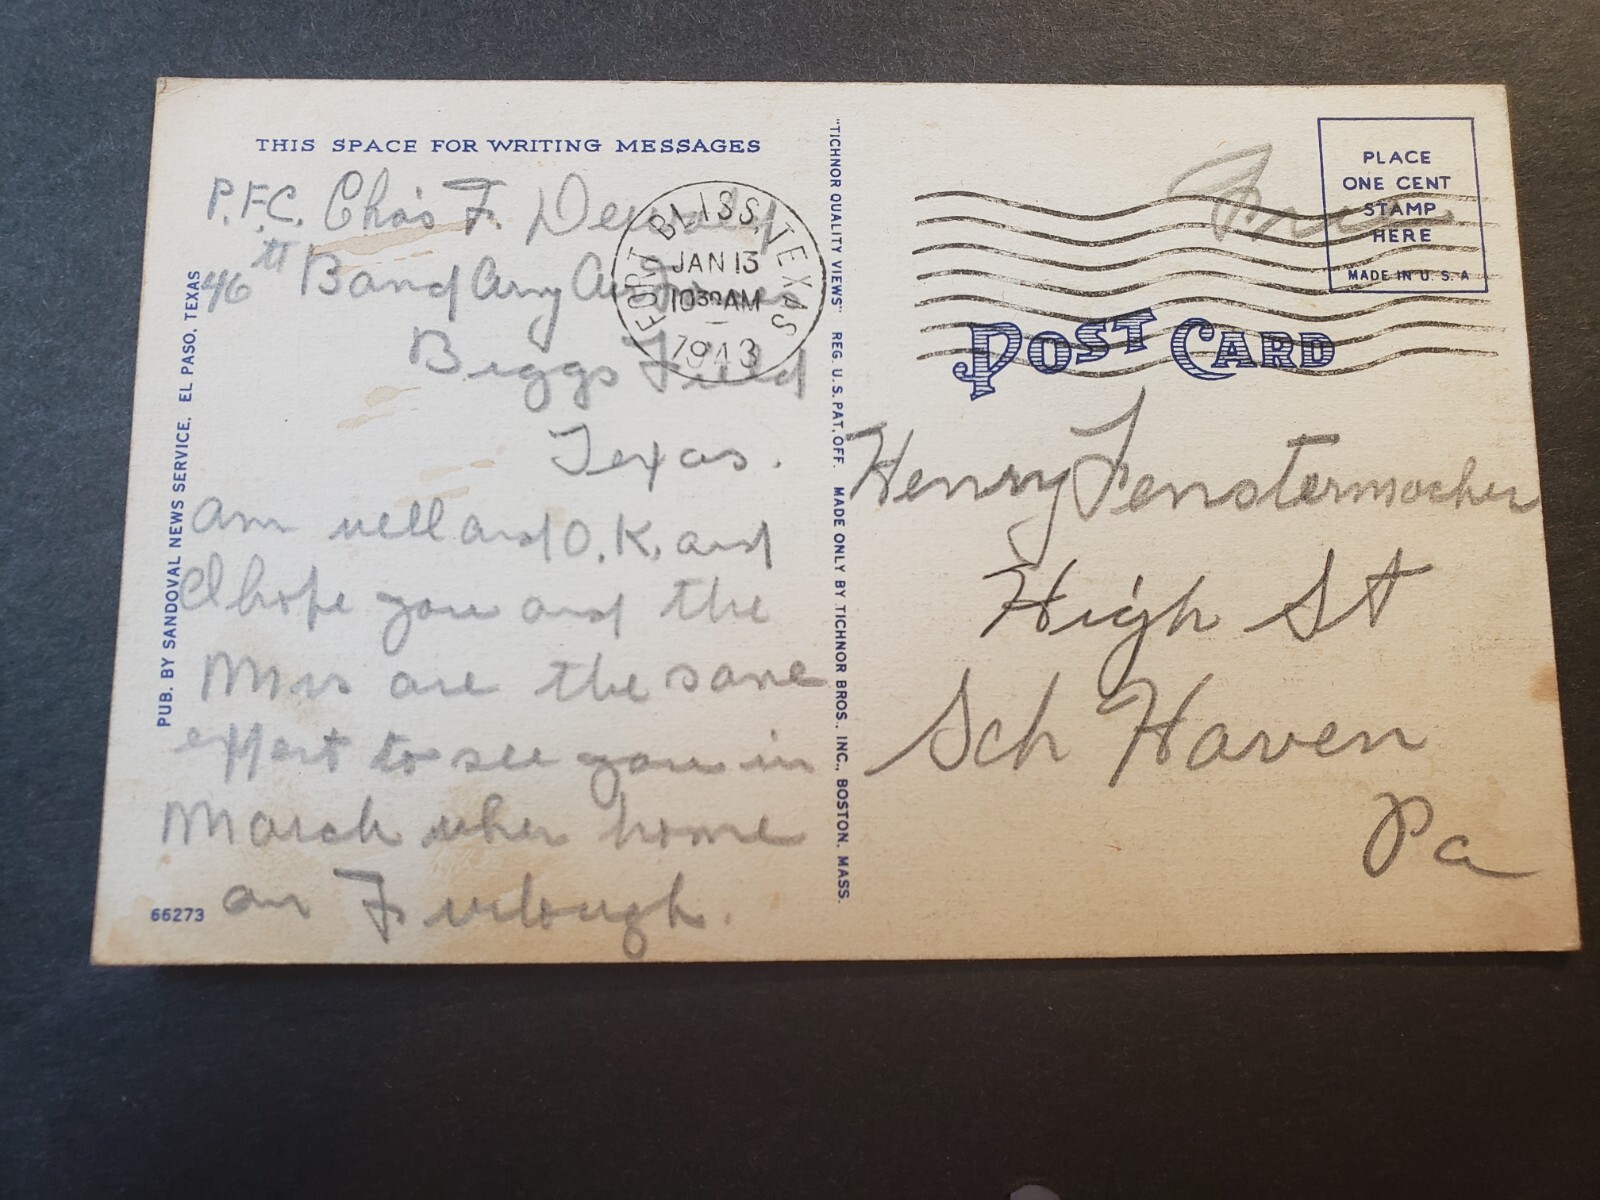 THIS SPACE FOR WRITING MESSAGES
P.F.C. Chas F.
46th Band Army Air
Biggs Field
Texas.
Am well and O.K. and
I hope you and the
Mrs are the same
effort to see you in
March when home
on Furlough.
66273
PUB. BY SANDOVAL NEWS SERVICE, EL PASO, TEXAS
FORT BLISS, TEXAS
JAN 13
10 30 AM
1943
"TICHNOR QUALITY VIEWS" REG. U.S. PAT. OFF. MADE ONLY BY TICHNOR BROS. INC., BOSTON, MASS.
Free
PLACE
ONE CENT
STAMP
HERE
MADE IN U.S.A
POST CARD
Henry Fenstermacher
High St
Sch Haven
Pa